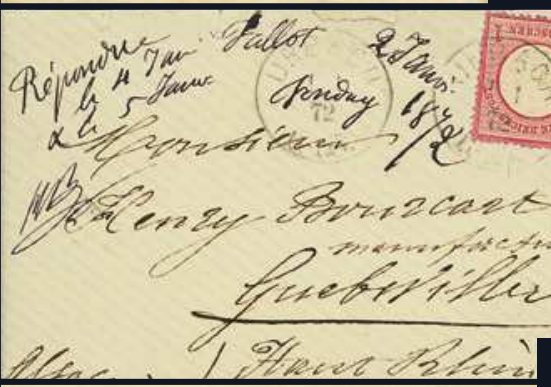 Répondu
le 4 Janv
& le 5 Janv.
Vallot
2 Janv.
1872
72
Monsieur
Henry Bourcart
manufactu
Guebwiller
Alsace
Haut Rhin